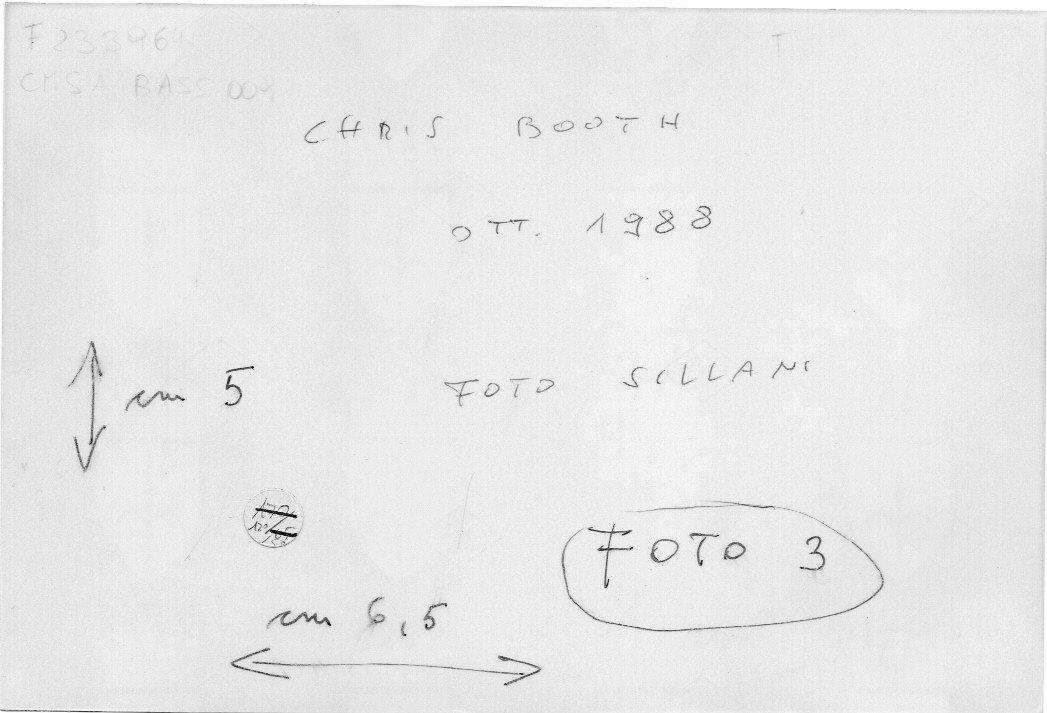 F233964
T
CMSA BASS 009
CHRIS BOOTH
OTT. 1988
cm 5
FOTO SILLANI
FOTO 3
cm 6,5